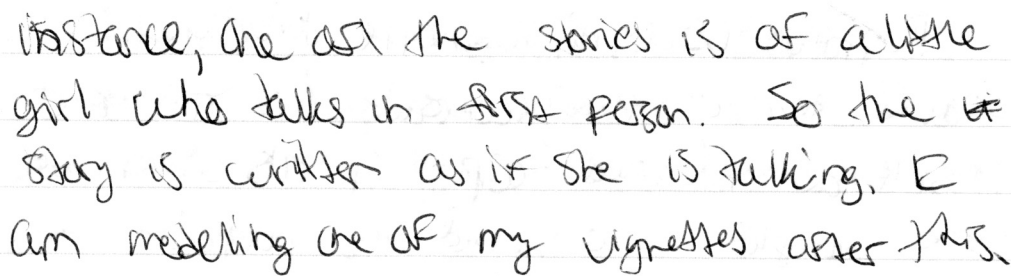 instance, one of the stories is of a little
girl who talks in first person. So the
story is written as if she is talking. I
am modeling one of my vignettes after this.